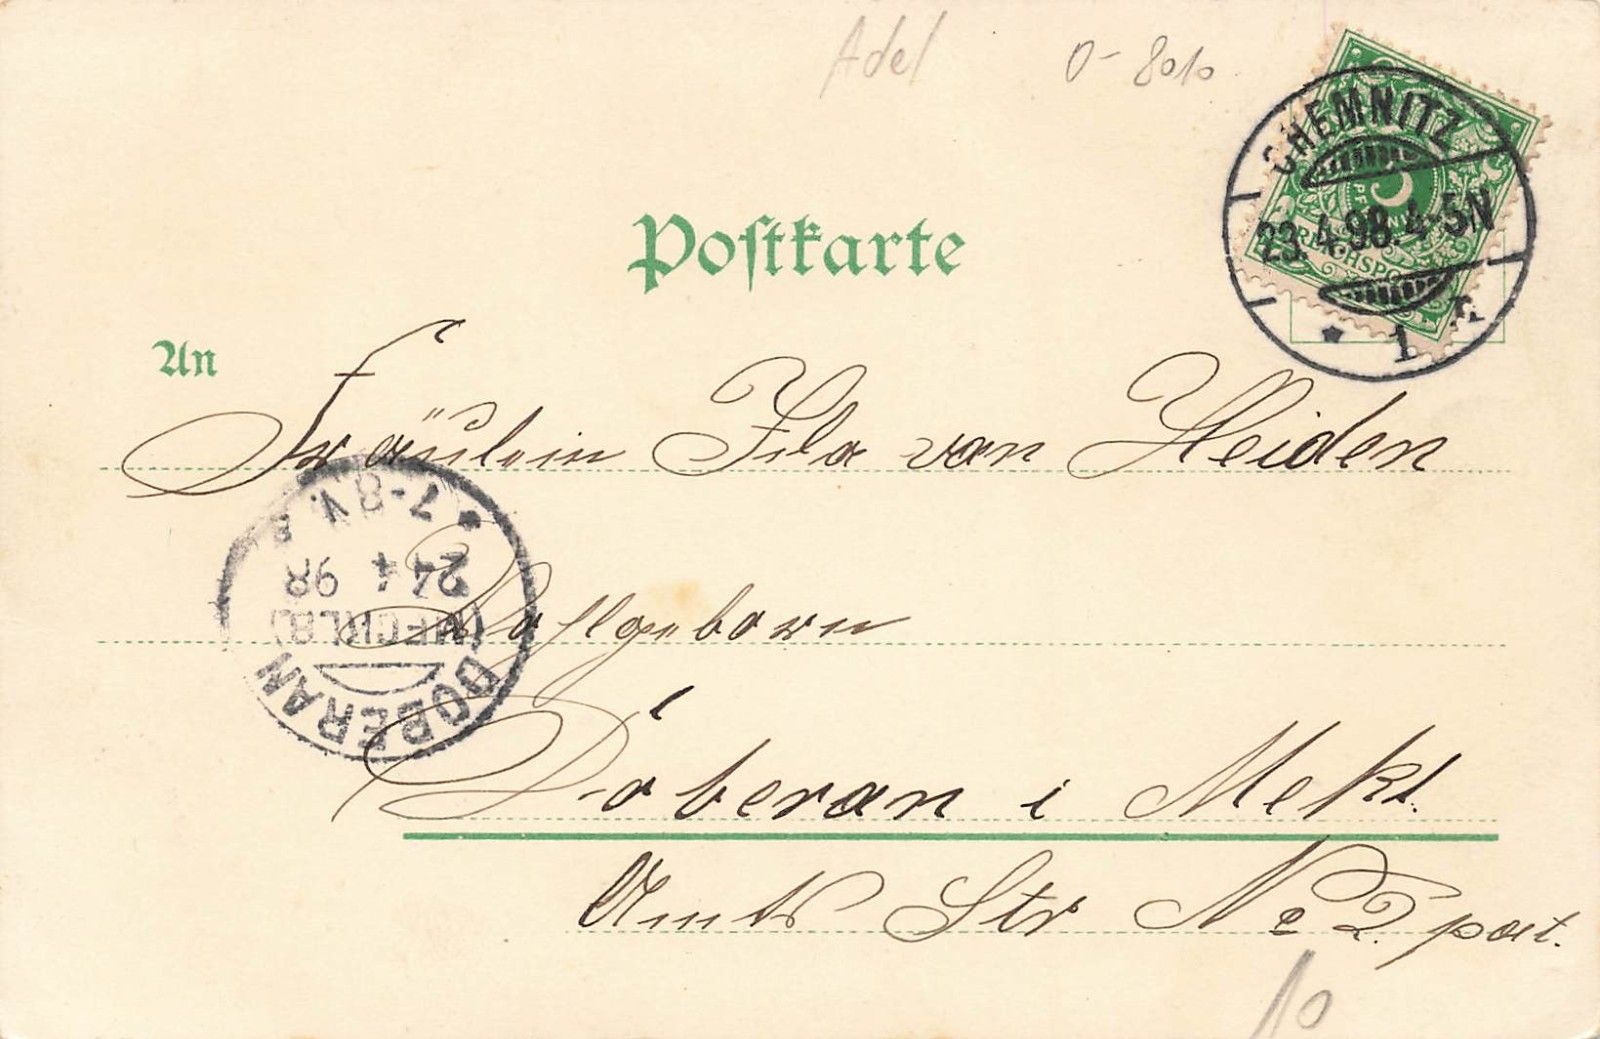 Adel
0-8010
CHEMNITZ
23.4.98.4-5N
* 1 r.
PFENNIG
REICHSPOST
Postkarte
An
Fräulein Ila van Heiden
Hochgeborn
Doberan i Mekl.
Amts Str No 2. part.
DOBERAN
(MECKLB.)
24 4 98
* 7-8V. *
10